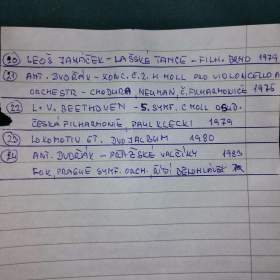 20 LEOŠ JANÁČEK - LAŠSKÉ TANCE - FILH. BRNO 1979
21 ANT. DVOŘÁK - KONC. Č. 2. H MOLL PRO VIOLONCELLO A
ORCHESTR - CHODURA, NEUMAN, Č. FILHARMONIE 1976
22 L. V. BEETHOVEN - 5. SYMF. C MOLL OSUD.
ČESKÁ FILHARMONIE, PAUL KLECKI 1979
23 LOKOMOTIV GT. DVOJALBUM 1980
24 ANT. DVOŘÁK - PRAŽSKÉ VALČÍKY 1983
FOK, PRAGUE SYMF. ORCH. ŘÍDÍ BĚLOHLÁVEK